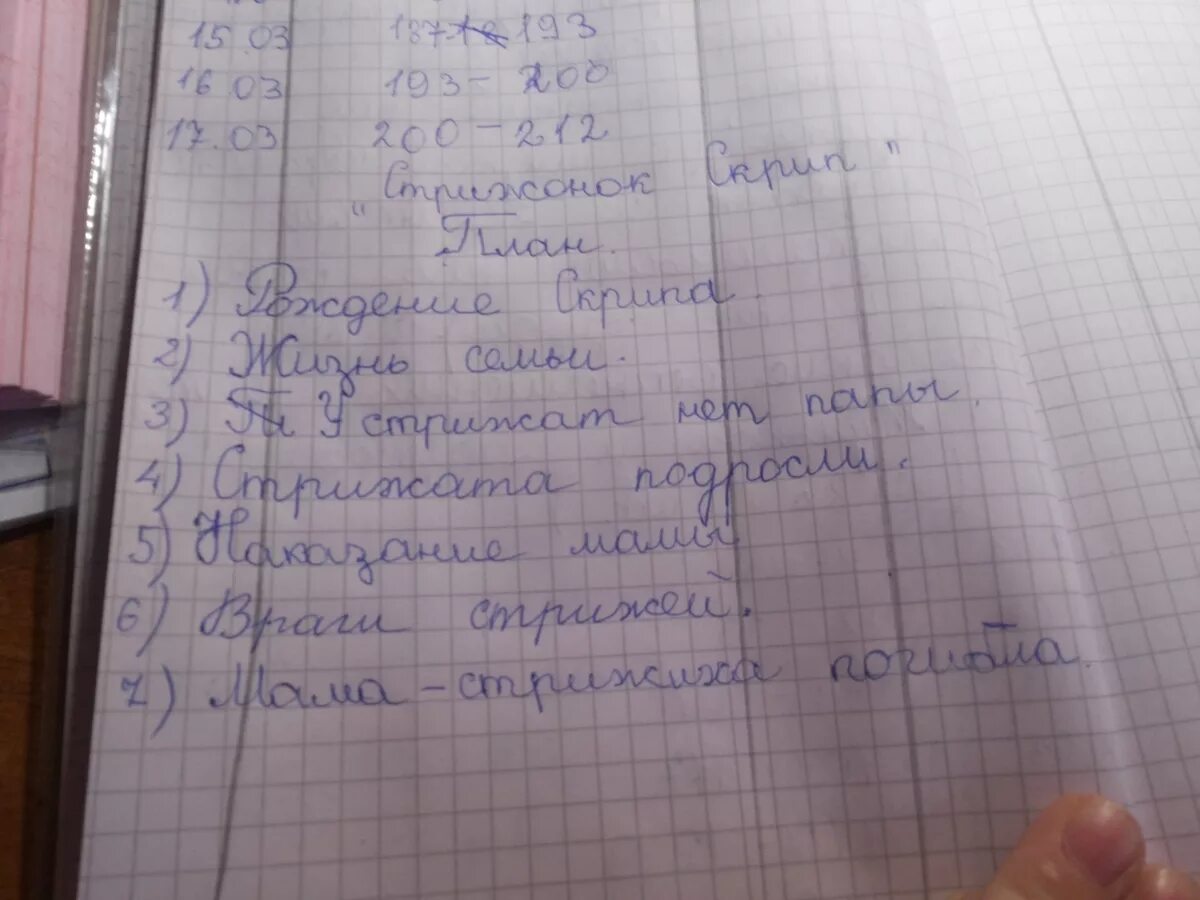 15.03 187-193
16.03 193-200
17.03 200-212
"Стрижонок Скрип"
План.
1) Рождение Скрипа.
2) Жизнь семьи.
3) У стрижат нет папы.
4) Стрижата подросли.
5) Наказание мамы
6) Враги стрижей.
7) Мама-стрижиха погибла.